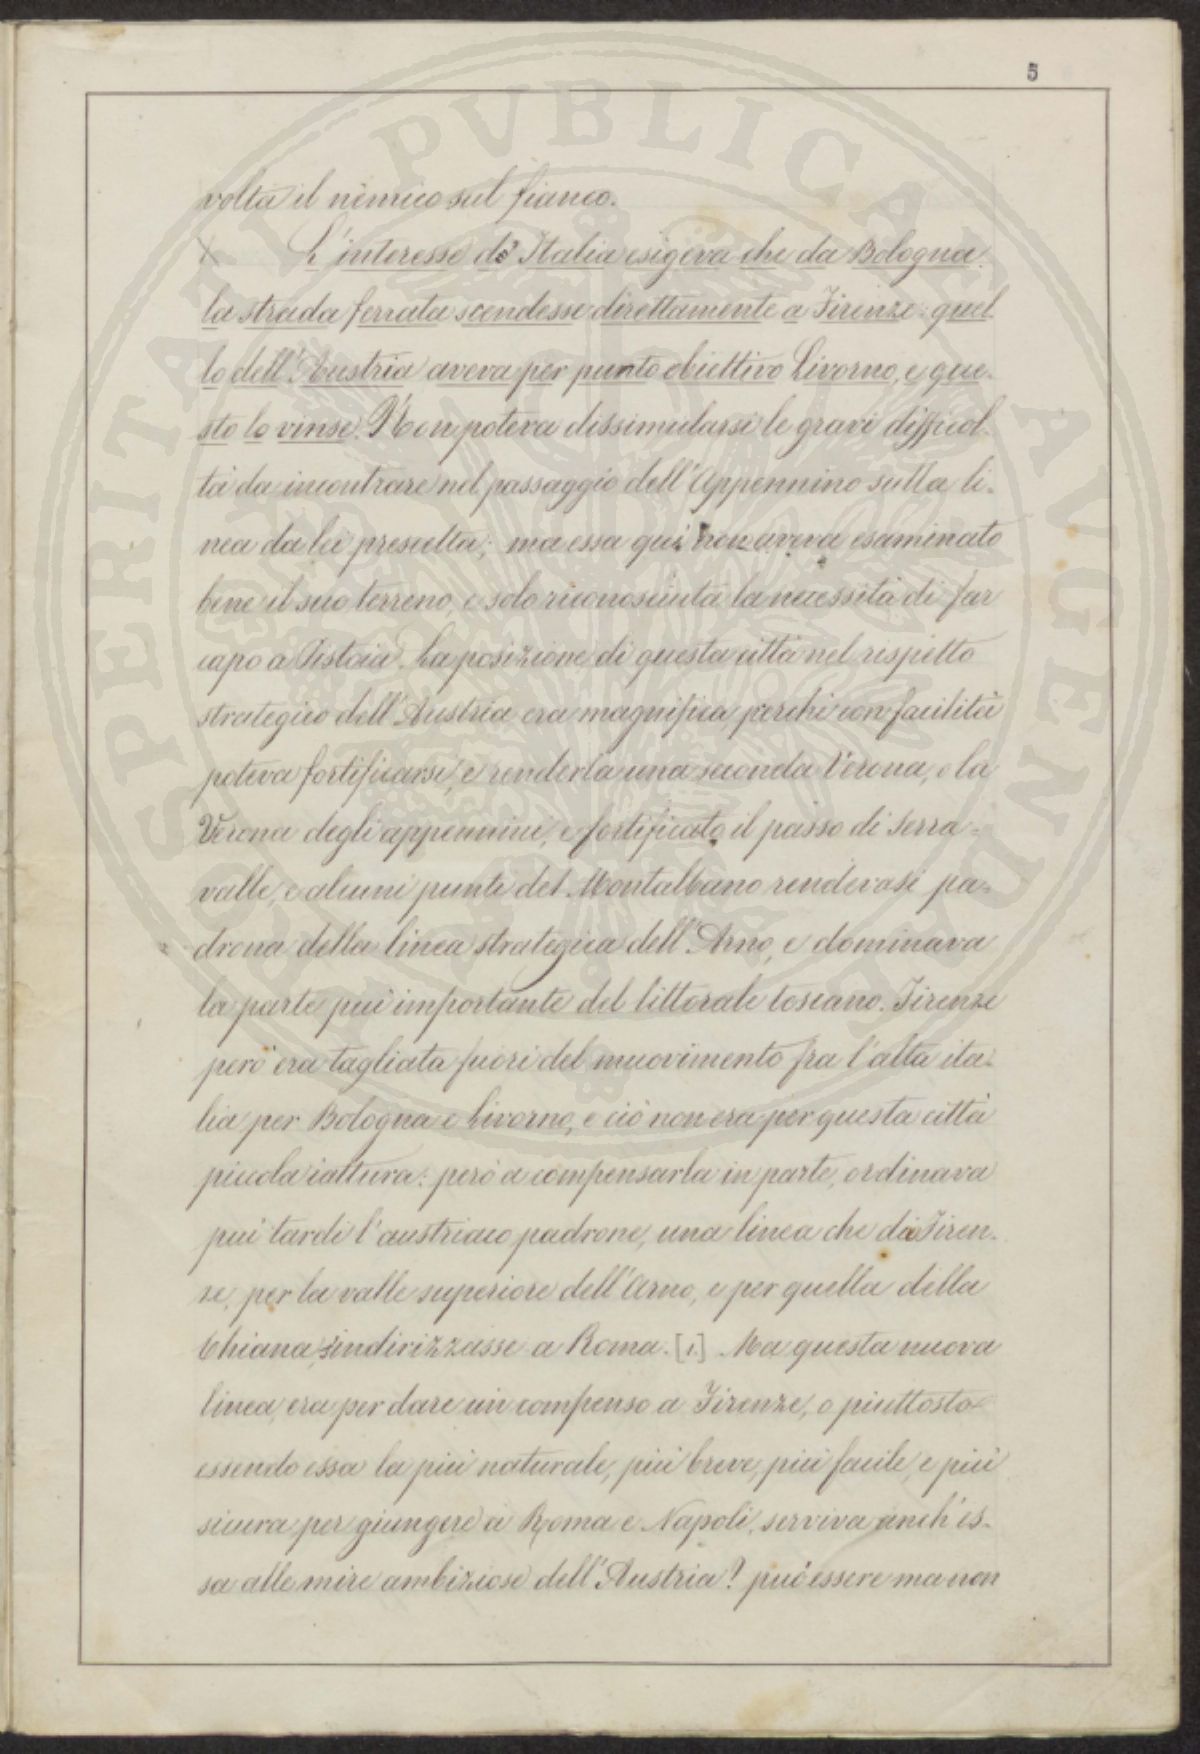 5
volta il nemico sul fianco.
L'interesse d'Italia esigeva che da Bologna
la strada ferrata scendesse direttamente a Firenze: quel
lo dell'Austria aveva per punto obiettivo Livorno, e que-
sto lo vinse. Non poteva dissimularsi le gravi difficol-
tà da incontrare nel passaggio dell'Appennino sulla li-
nea da lei prescelta; ma essa qui non aveva esaminato
bene il suo terreno, e solo riconosciuta la necessità di far
capo a Pistoia. La posizione di questa città nel rispetto
strategico dell'Austria era magnifica, perchè con facilità
poteva fortificarsi, e renderla una seconda Verona, o la
Verona degli appennini, e fortificato il passo di Serra=
valle, e alcuni punti del Montalbano rendevasi pa=
drona della linea strategica dell'Arno, e dominava
la parte più importante del littorale toscano. Firenze
però era tagliata fuori del muovimento fra l'alta ita-
lia per Bologna e Livorno, e ciò non era per questa città
piccola iattura: però a compensarla in parte, ordinava
più tardi l'austriaco padrone, una linea che da Firen-
ze, per la valle superiore dell'Arno, e per quella della
Chiana, s'indirizzasse a Roma. [1.] Ma questa nuova
linea, era per dare un compenso a Firenze, o piuttosto
essendo essa la più naturale, più breve, più facile, e più
sicura per giungere a Roma e Napoli, serviva anch'es-
sa alle mire ambiziose dell'Austria? può essere ma non
SPERITAT PVBLICAE AVGENDAE